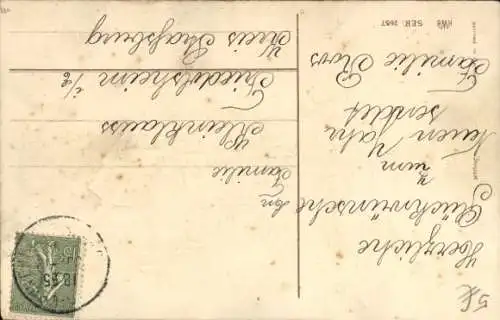 Herzliche
Glückwünsche
zum
Neuen Jahr
sendet
Familie Roos
HWB SER. 2657
Familie
Kleinklauss
Friedolsheim i/E
Kreis Straßburg
15c